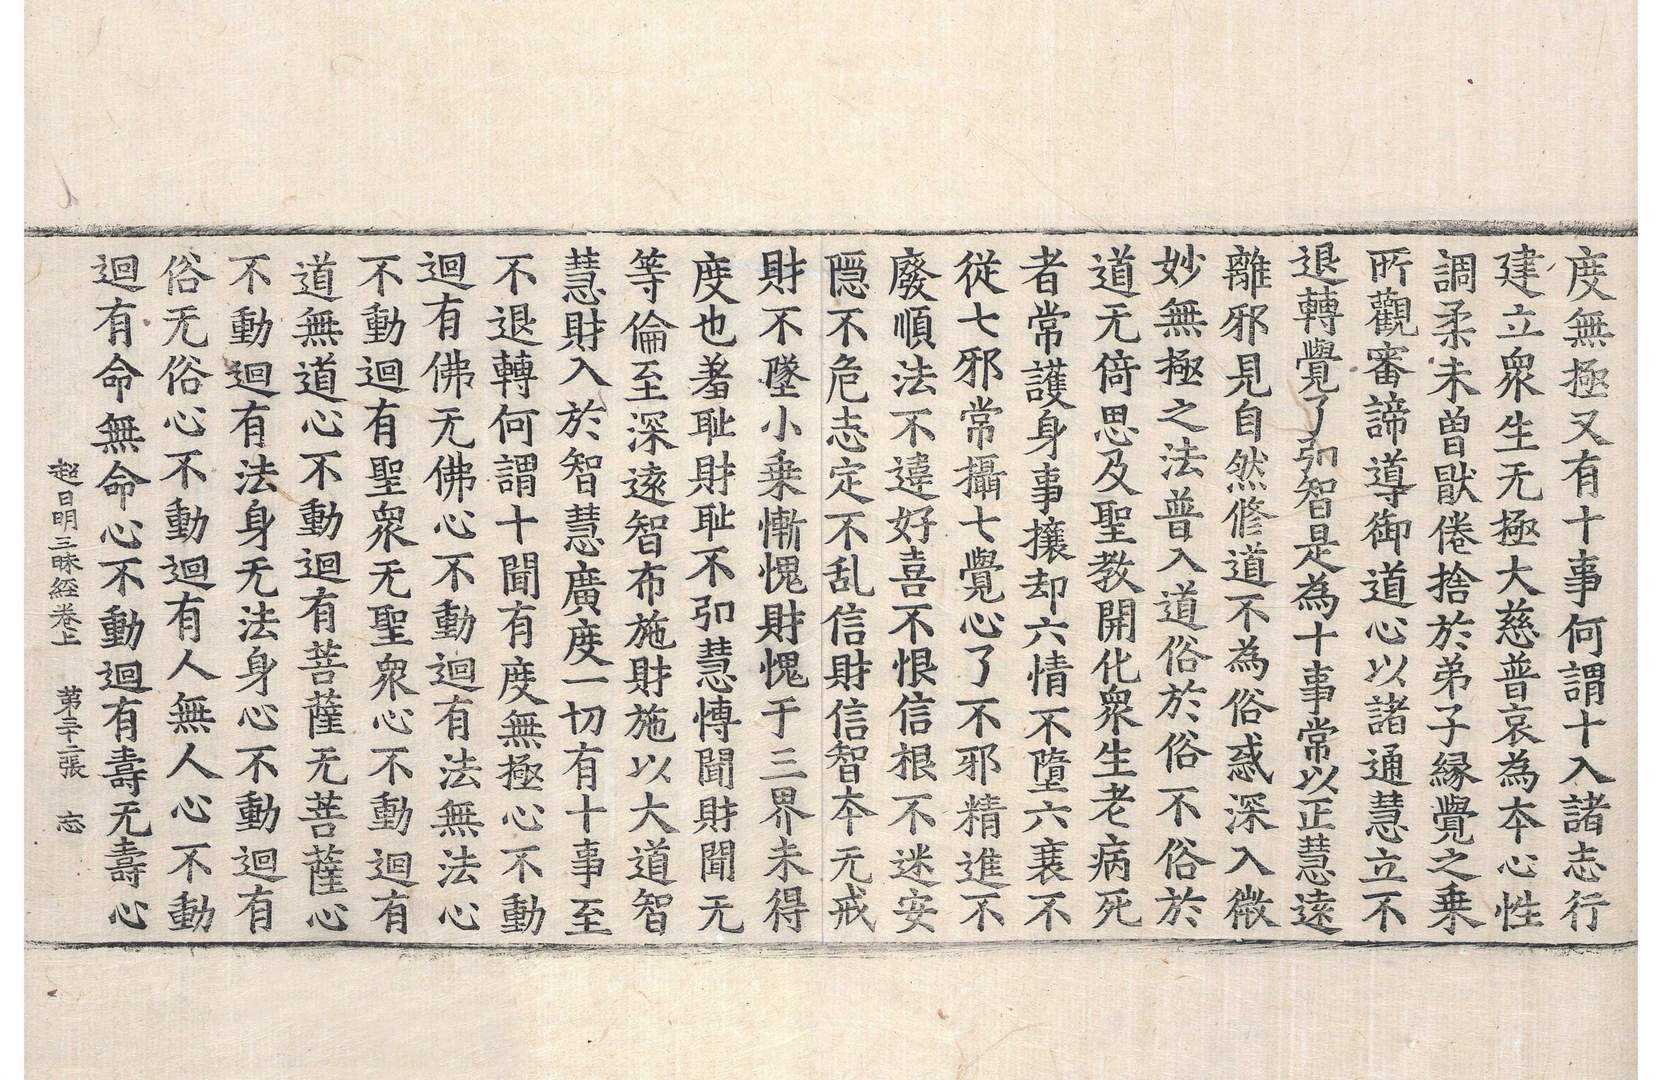 度無極又有十事何謂十入諸志行
建立衆生无極大慈普哀為夲心性
調柔未曽猒倦捨於弟子縁覺之乗
所觀審諦導御道心以諸通慧立不
退轉覺了卭智是為十事常以正慧遠
離邪見自然修道不為俗惑深入微
妙無極之法普入道俗於俗不俗於
道无倚思及聖教開化衆生老病死
者常護身事攘却六情不墮六衰不
從七邪常攝七覺心了不邪精進不
廢順法不違好喜不恨信根不迷安
隠不危志定不乱信財信智夲无戒
財不墜小乗慚愧財愧于三界未得
度也羞耻財耻不卭慧愽聞財聞无
等倫至深遠智布施財施以大道智
慧財入於智慧廣度一切有十事至
不退轉何謂十聞有度無極心不動
迴有佛无佛心不動迴有法無法心
不動迴有聖衆无聖衆心不動迴有
道無道心不動迴有菩薩无菩薩心
不動迴有法身无法身心不動迴有
俗无俗心不動迴有人無人心不動
迴有命無命心不動迴有壽无壽心
超日明三昧經卷上 第二張 忘